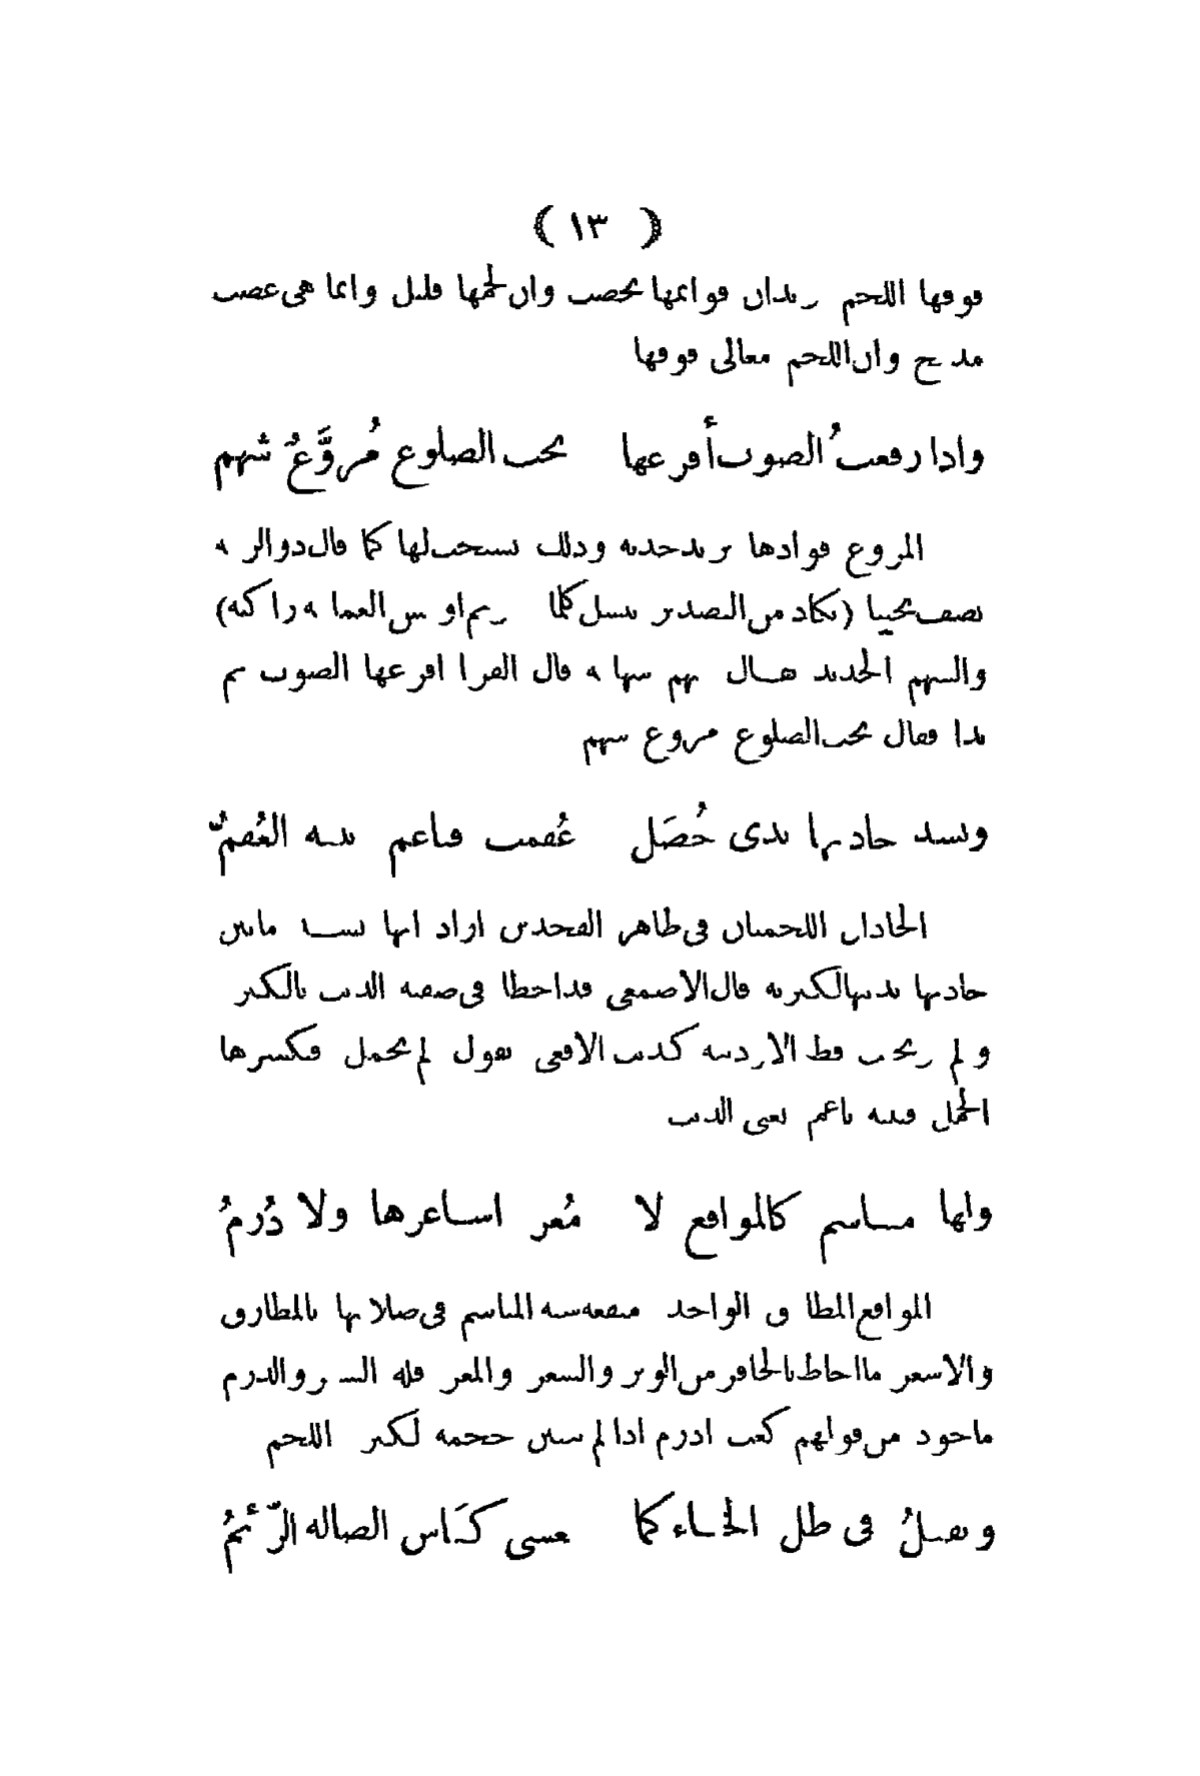 ( ١٣ )
فوقها اللحم يريد ان قوائمها محصت وان لحمها قليل وانما هى عصب
مدمج وان اللحم معالى فوقها
واذا رفعتُ الصوت أفزعها تحت الضلوع مُروَّعُ شهم
المروع فوادها يريد حدته وذلك يستحب لها كما قال ذو الرمه
يصف نجيبا (تكاد من التصدير تنسل كلما ترنم او مس العمامه راكبه)
والشهم الحديد يقال شهم شهامه قال الفرا افزعها الصوت ثم
بدا فقال تحت الضلوع مروع شهم
وتسد حاذيها بذى خُصَل عُقمت فناعم نبته العُقمُ
الحاذان اللحمتان فى ظاهر الفخذين اراد انها تسد ما بين
حاذيها بذنبها لكثرته قال الاصمعى قد اخطا فى صفه الذنب بالكثر
ولم يركب قط الا ردية كذنب الافعى يقول لم تحمل فيكسرها
الحمل فنبته ناعم يعنى الذنب
ولها مناسم كالمواقع لا مُعر اشاعرها ولا دُرمُ
المواقع المطارق الواحد ميقعه شبه المناسم فى صلابتها بالمطارق
والاشعر ما احاط بالحافر من الوبر والشعر والمعر قله الشعر والدرم
ماخوذ من قولهم كعب ادرم اذا لم يتبين حجمه لكثر اللحم
وتقيلُ فى ظل الخباء كما يغشى كنَاس الضاله الرّئمُ